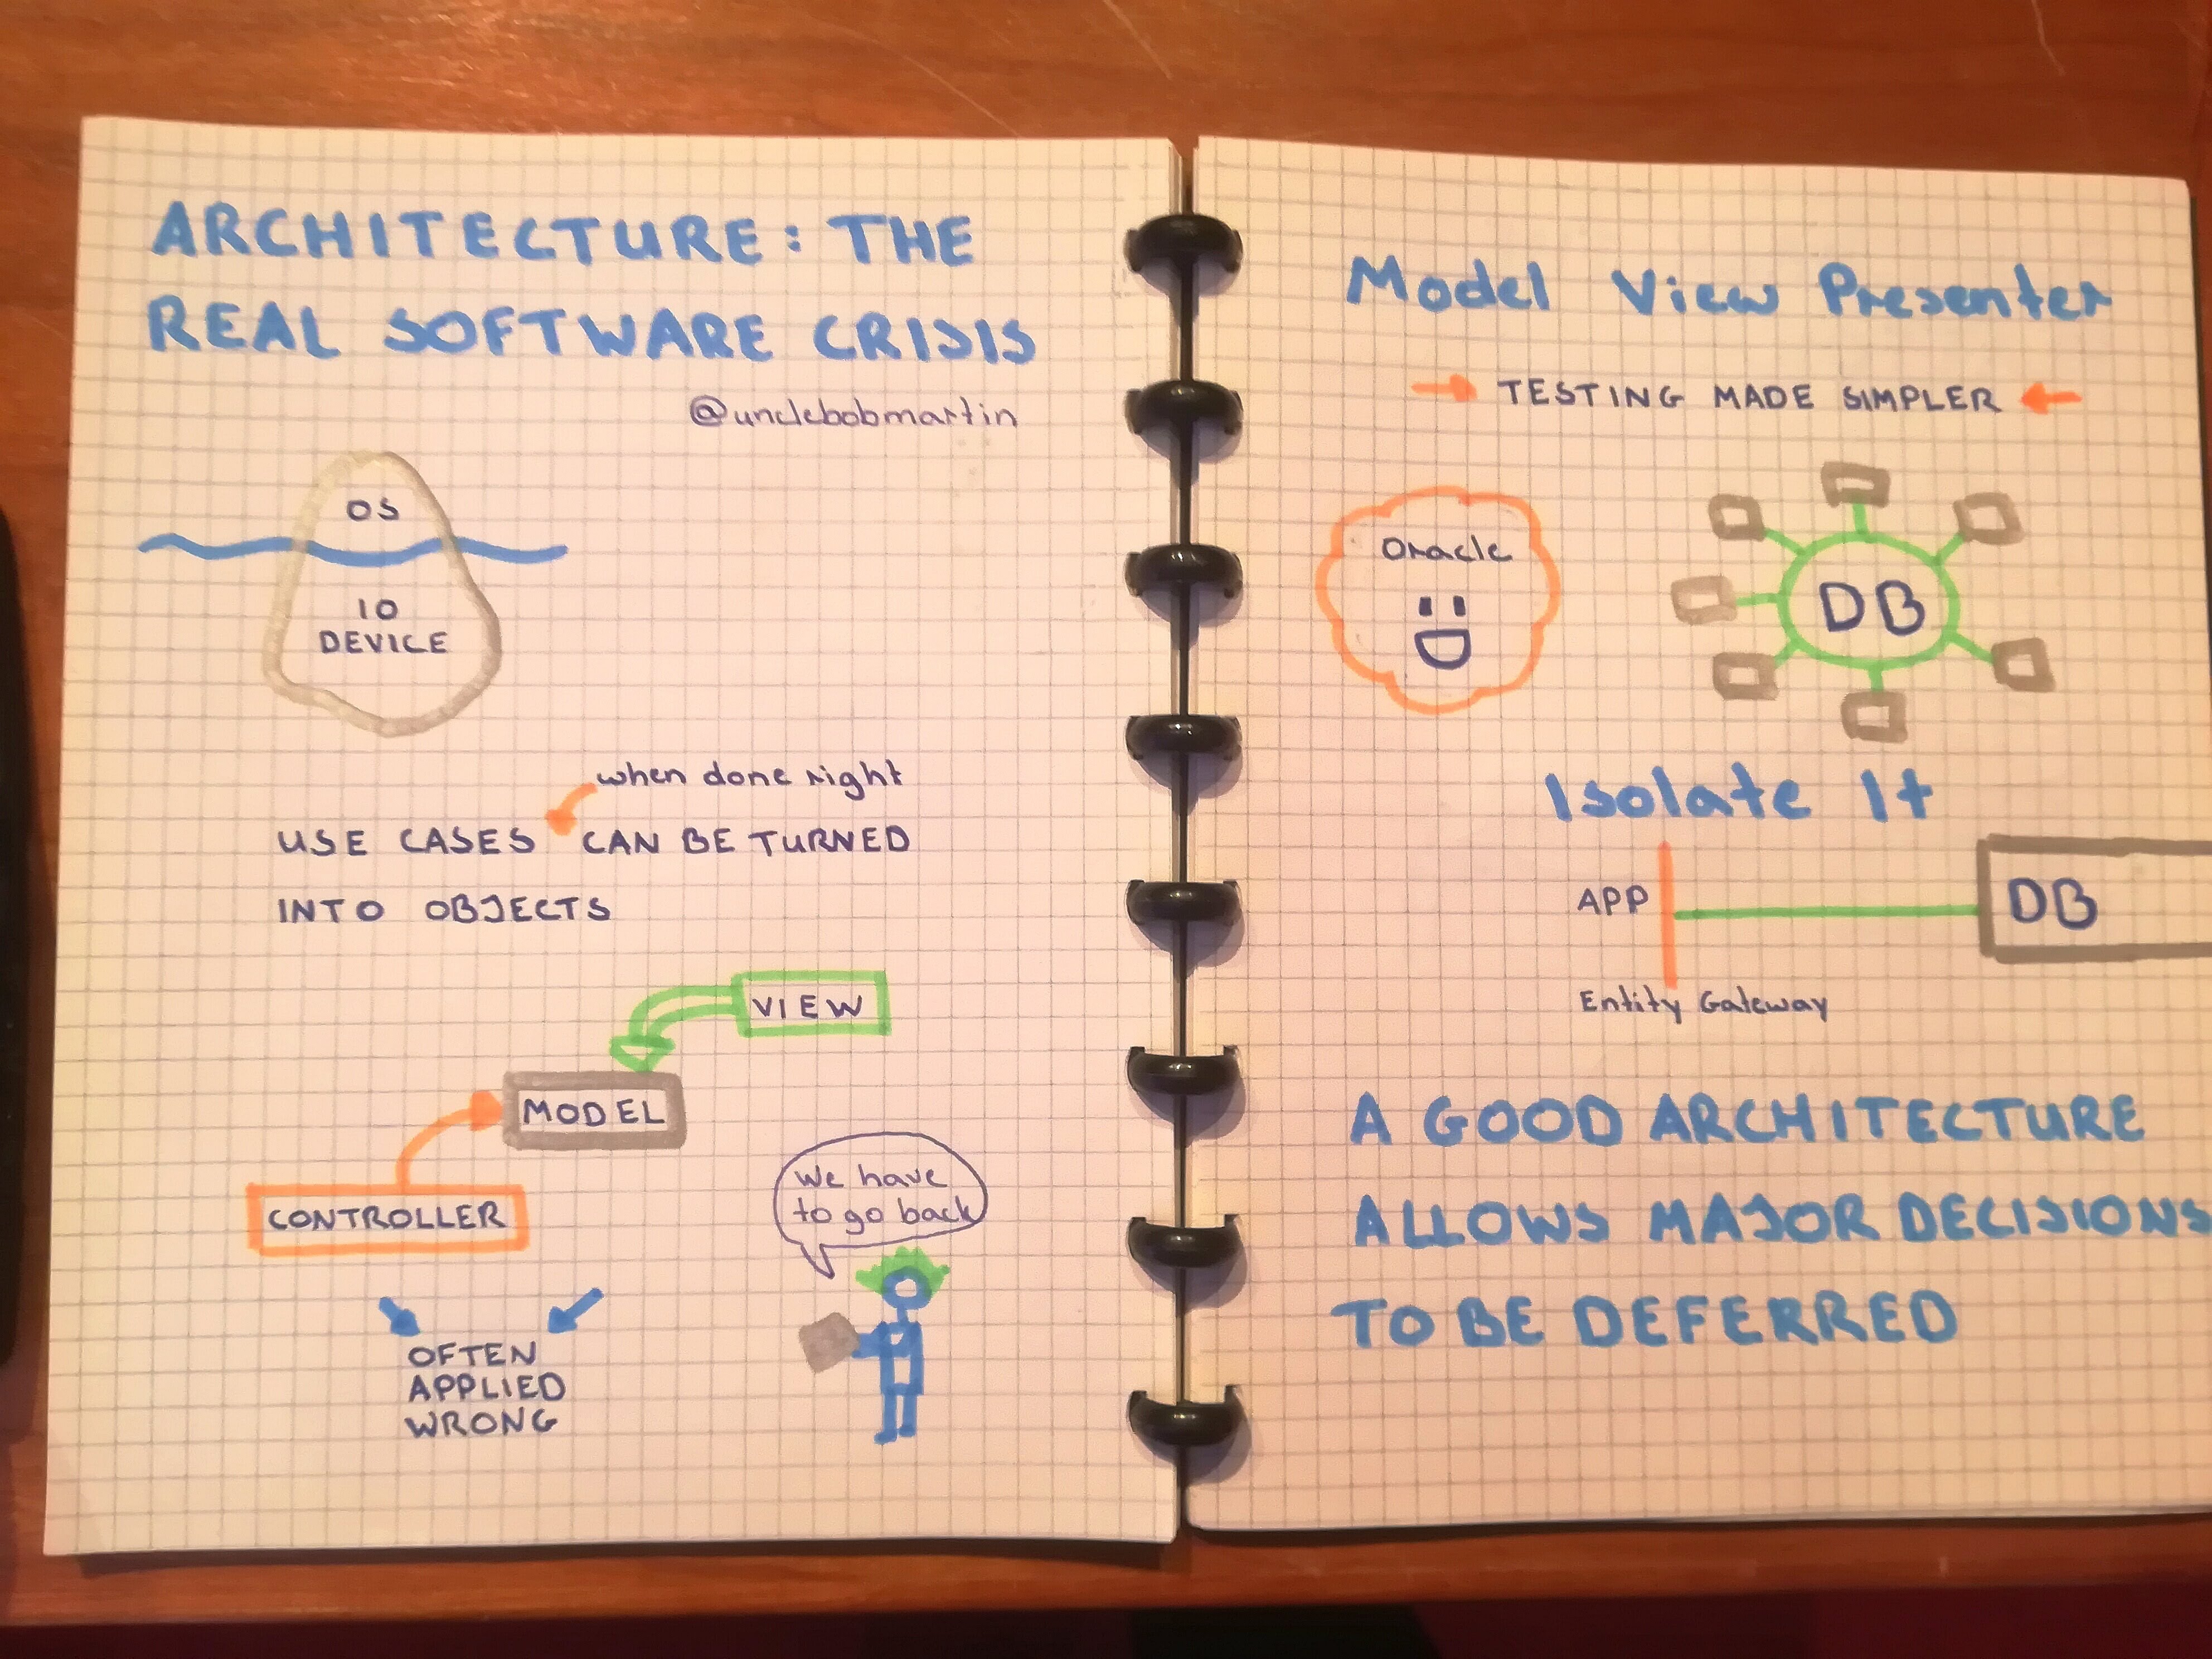 ARCHITECTURE: THE
REAL SOFTWARE CRISIS
@unclebobmartin
OS
IO
DEVICE
when done right
USE CASES CAN BE TURNED
INTO OBJECTS
VIEW
MODEL
CONTROLLER
We have
to go back
OFTEN
APPLIED
WRONG
Model View Presenter
TESTING MADE SIMPLER
Oracle
DB
Isolate It
APP
DB
Entity Gateway
A GOOD ARCHITECTURE
ALLOWS MAJOR DECISIONS
TO BE DEFERRED